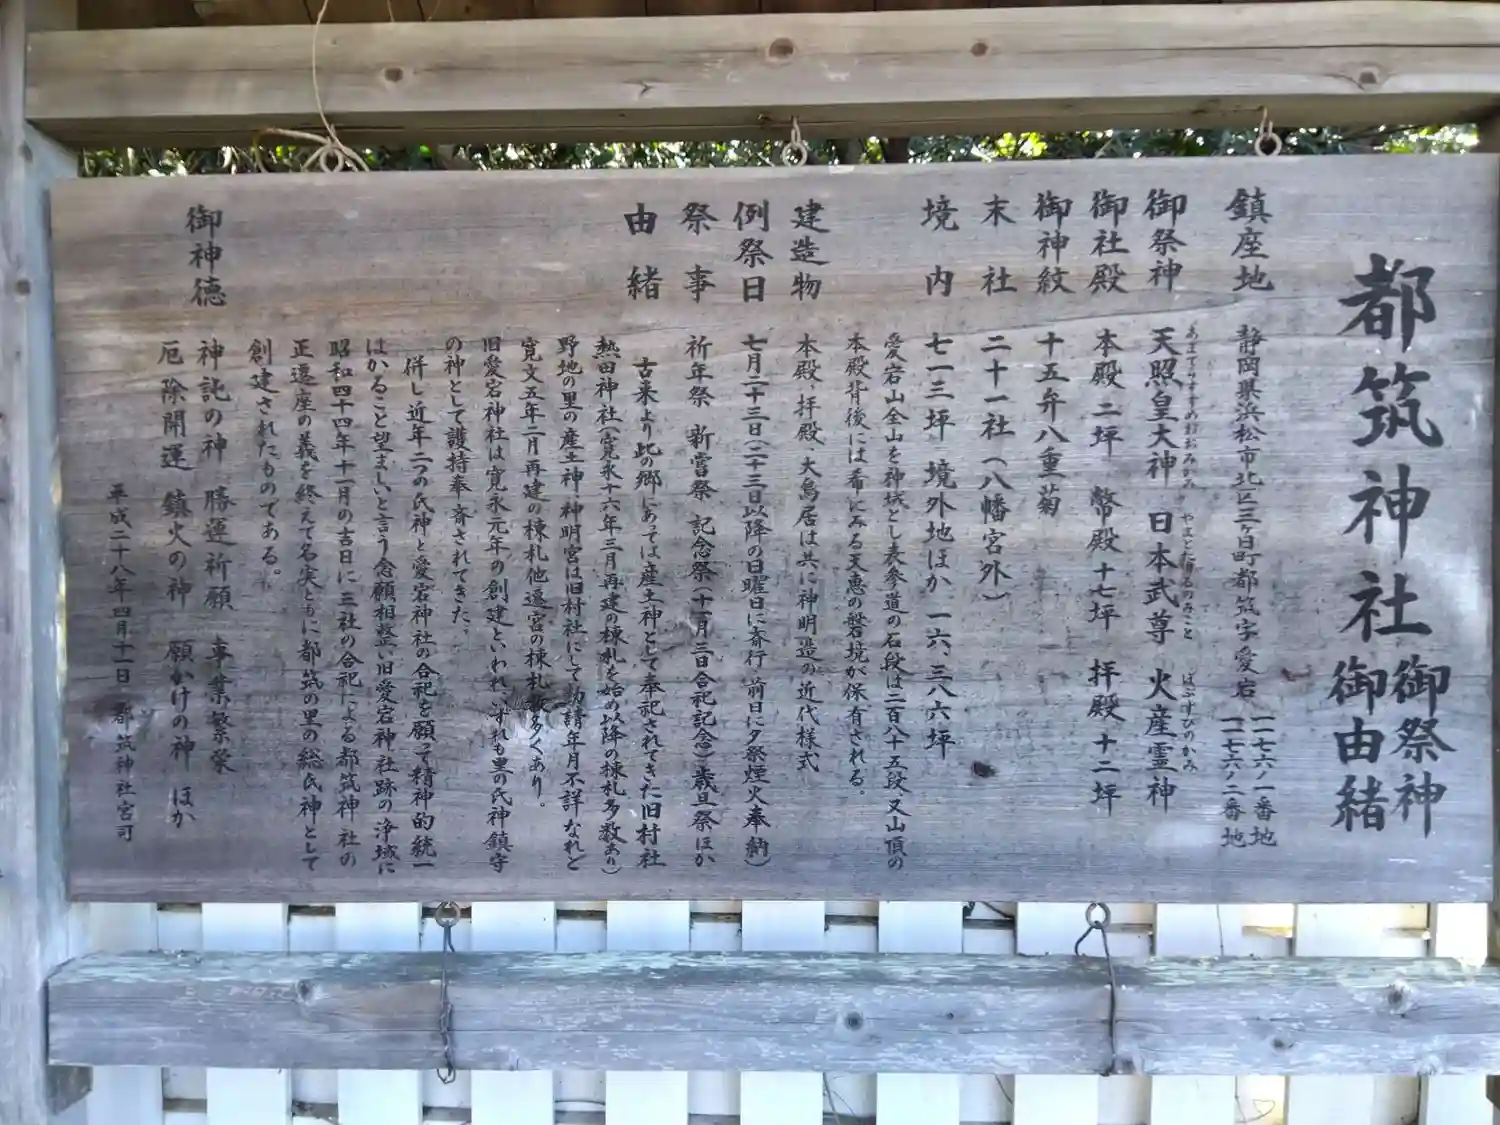 都筑神社 御祭神 御由緒
鎮座地 静岡県浜松市北区三ヶ日町都筑字愛宕 一一七六ノ一番地 一一七六ノ二番地
御祭神 天照皇大神 日本武尊 火産霊神
あまてらすすめおおみかみ やまとたけるのみこと ほぶすびのかみ
御社殿 本殿 二坪 幣殿 十七坪 拝殿 十二坪
御神紋 十五弁八重菊
末社 二十一社(八幡宮外)
境内 七一三坪 境外地ほか 一六、三八六坪
愛宕山全山を神域とし表参道の石段は二百八十五段、又山頂の
本殿背後には希にみる天恵の磐境が保有される。
建造物 本殿、拝殿、大鳥居は共に神明造の近代様式
例祭日 七月二十三日(二十三日以降の日曜日に斎行 前日に夕祭煙火奉納)
祭事 祈年祭 新嘗祭 記念祭(十一月三日合祀記念)歳旦祭ほか
由緒 古来より此の郷にあっては産土神として奉祀されてきた旧村社
熱田神社(寛永十六年三月再建の棟札を始め以降の棟札多数あり)
野地の里の産土神、神明宮は旧村社にして勧請年月不詳なれど
寛文五年二月再建の棟札他遷宮の棟札数多くあり。
旧愛宕神社は寛永元年の創建といわれ、いずれも里の氏神鎮守
の神として護持奉斎されてきた。
併し近年二つの氏神と愛宕神社の合祀を願って精神的統一
はかること望ましいと言う念願相整い旧愛宕神社跡の浄域に
昭和四十四年十一月の吉日に三社の合祀による都筑神社の
正遷座の義を終えて名実ともに都筑の里の総氏神として
創建されたものである。
御神徳 神託の神 勝運祈願 事業繁栄
厄除開運 鎮火の神 願かけの神 ほか
平成二十八年四月十一日 都筑神社宮司